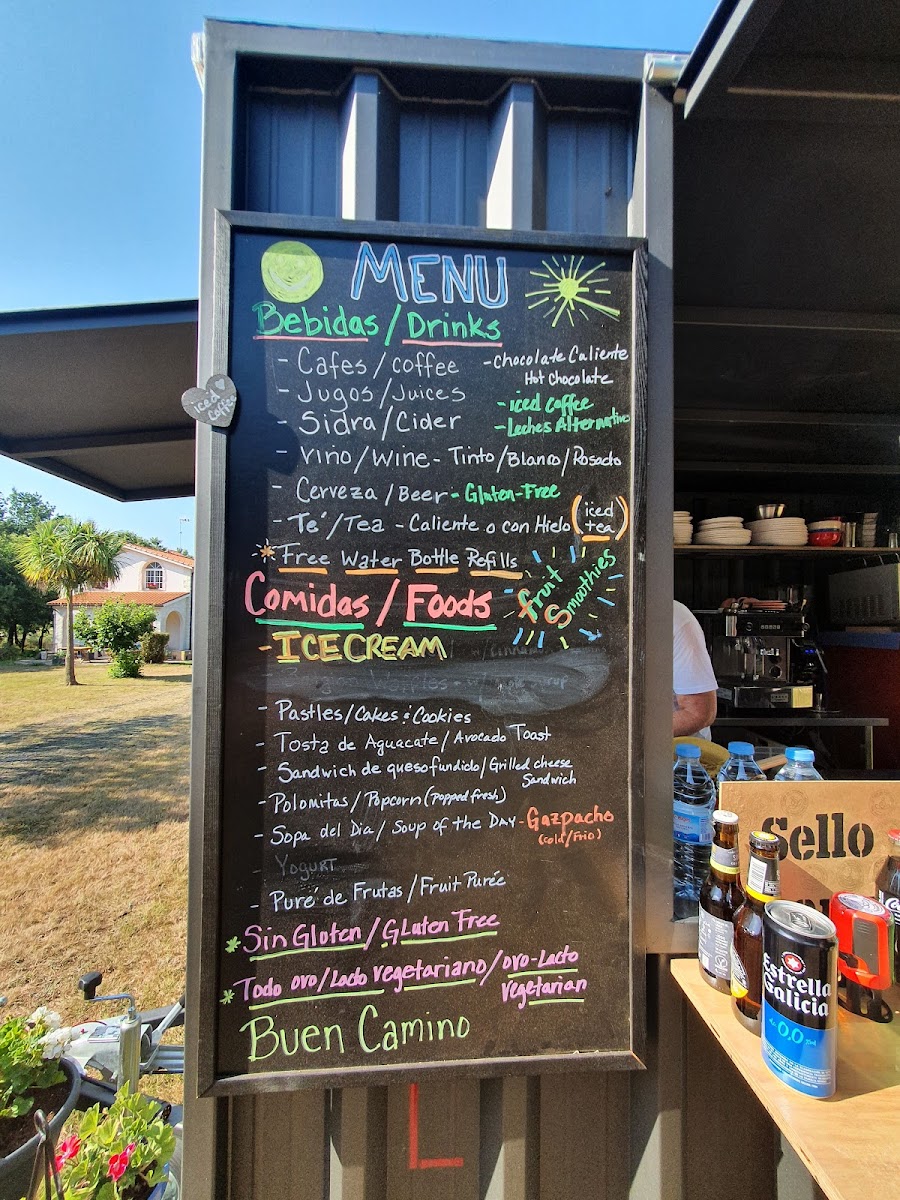 MENU
Bebidas / Drinks
- Cafes / coffee
- Chocolate Caliente
Hot Chocolate
- Jugos / Juices
- iced coffee
iced coffee
- Sidra / Cider
- Leches Alternativas
- Vino / Wine - Tinto / Blanco / Rosado
- Cerveza / Beer - Gluten-Free
- Te' / Tea - Caliente o con Hielo (iced tea)
* Free Water Bottle Refills
fruit Smoothies
Comidas / Foods
- ICE CREAM
- Pastles / Cakes & Cookies
- Tosta de Aguacate / Avocado Toast
- Sandwich de queso fundido / Grilled cheese
Sandwich
- Polomitas / Popcorn (popped fresh)
- Sopa del Dia / Soup of the DAY - Gazpacho
(cold / Frio)
- Yogurt
- Puré de Frutas / Fruit Purée
* Sin Gloten / Gluten Free
* Todo ovo / Lacto vegetariano / ovo-Lacto
Vegetarian
Buen Camino
Sello
Estrella
Galicia
0,0